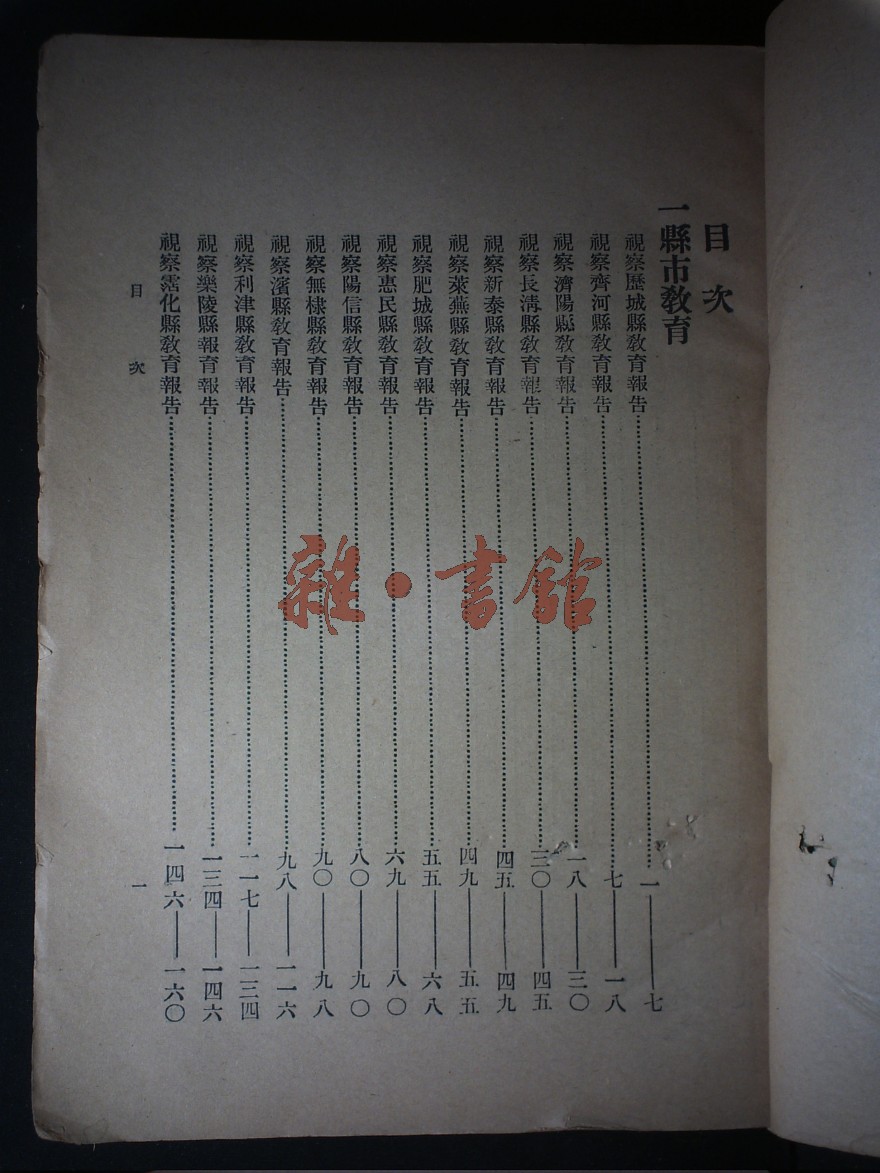 目次
一縣市教育
視察歷城縣教育報告……一——七
視察齊河縣教育報告……七——一八
視察濟陽縣教育報告……一八——三〇
視察長淸縣教育報告……三〇——四五
視察新泰縣教育報告……四五——四九
視察萊蕪縣教育報告……四九——五五
視察肥城縣教育報告……五五——六八
視察惠民縣教育報告……六九——八〇
視察陽信縣教育報告……八〇——九〇
視察無棣縣教育報告……九〇——九八
視察濱縣教育報告……九八——一一六
視察利津縣教育報告……一一七——一三四
視察樂陵縣報育報告……一三四——一四六
視察霑化縣教育報告……一四六——一六〇
目次
一
雜·書館